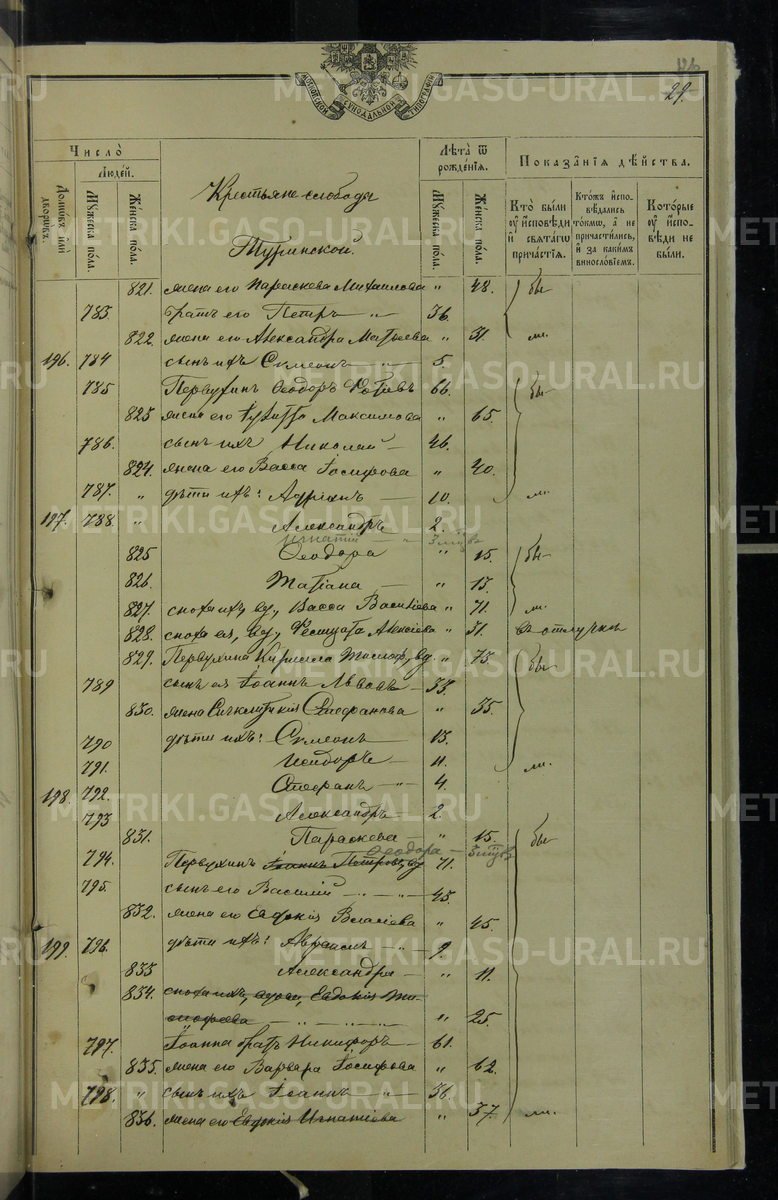 МОСКОВСКОЙ СѴНОДАЛЬНОЙ ТИПОГРАФІИ
126
29.
Число̀
Людей.
Домовъ или дворовъ.
Мужеска пола.
Женска пола.
Крестьяне слободы
Туринской.
Лѣта ѿ рожденїѧ.
Мужеска пола.
Женска пола.
Показанїѧ дѣйства.
Кто были оу исповѣди и свѧтагѡ причастїѧ.
Ктожъ исповѣдались токмѡ, а не причастились, и за какимъ винословїемъ.
Которые оу исповѣди не были.
821. жена его Параскева Михаилова " 48. бы
783. братъ его Петръ — " — 36.
822. жена его Александра Матѳеева " 31. ли.
196. 784 сынъ ихъ Симеонъ — " — 5.
785. Первухинъ Ѳеодоръ 66. бы
823 жена его Максимова " 65.
786. сынъ ихъ Николай — 46.
824. жена его Васса Іосифова " 40.
787. " дѣти ихъ: Адріанъ — 10. ли.
197. 788. " Александръ 2.
Игнатій — " 3 мѣсц
825 Ѳеодора " 15. бы
826. Татіана — " 13.
827. сноха ихъ, вд, Васса Васильева " 71. ли.
828. сноха ея, вд, Алексіева " 51. въ отлучкѣ
829. Первухина вд " 75. бы
789 сынъ ея Іоаннъ Львовъ — 33.
830. жена Стефанова " 35.
790 дѣти ихъ: Симеонъ — 13.
791. Исидоръ — 11. ли.
198. 792. Стефанъ — " — 4.
793 Александръ — 2.
831. Параскева — " 15. бы
Ѳеодора — 3 мѣсц
794. Первухинъ Іоаннъ Петровъ, вд 71.
795. сынъ его Василій — " — " 45.
832. жена его Евдокія Власіева " 45.
199. 796. дѣти ихъ: — " — 9
833 Александра — " 11.
834. сноха ихъ, Евдокія Ти-
моѳеева — " — " — " " 25.
797. Іоанна братъ Никифоръ — 61.
835. жена его Варвара Іосифова " 62.
798. " сынъ ихъ Іоаннъ " 36.
836. жена его Евдокія Игнатіева " 37. ли.
METRIKI.GASO-URAL.RU